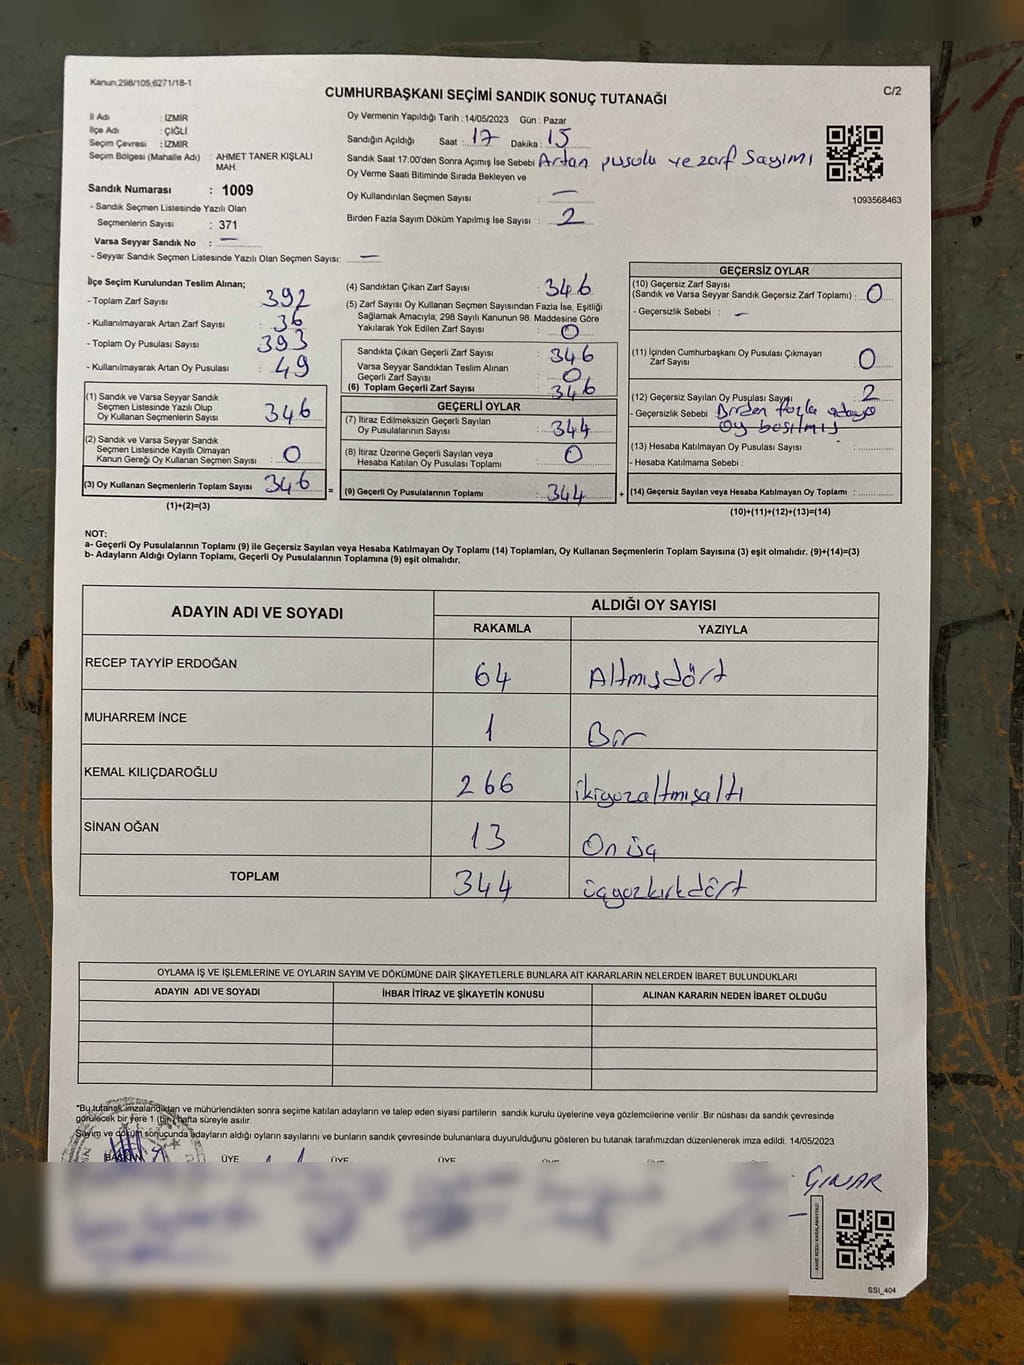 Kanun,298/105,6271/18-1
C/2
CUMHURBAŞKANI SEÇİMİ SANDIK SONUÇ TUTANAĞI
İl Adı : İZMİR
İlçe Adı : ÇİĞLİ
Seçim Çevresi : İZMİR
Seçim Bölgesi (Mahalle Adı) : AHMET TANER KIŞLALI MAH.
Sandık Numarası : 1009
- Sandık Seçmen Listesinde Yazılı Olan
Seçmenlerin Sayısı : 371
Varsa Seyyar Sandık No : —
- Seyyar Sandık Seçmen Listesinde Yazılı Olan Seçmen Sayısı: —
Oy Vermenin Yapıldığı Tarih : 14/05/2023 Gün : Pazar
Sandığın Açıldığı Saat : 17 Dakika : 15
Sandık Saat 17:00'den Sonra Açımış İse Sebebi Artan pusula ve zarf Sayımı
Oy Verme Saati Bitiminde Sırada Bekleyen ve
Oy Kullandırılan Seçmen Sayısı : —
Birden Fazla Sayım Döküm Yapılmış İse Sayısı : 2
1093568463
İlçe Seçim Kurulundan Teslim Alınan;
- Toplam Zarf Sayısı : 392
- Kullanılmayarak Artan Zarf Sayısı : 36
- Toplam Oy Pusulası Sayısı : 393
- Kullanılmayarak Artan Oy Pusulası : 49
(1) Sandık ve Varsa Seyyar Sandık
Seçmen Listesinde Yazılı Olup
Oy Kullanan Seçmenlerin Sayısı : 346
(2) Sandık ve Varsa Seyyar Sandık
Seçmen Listesinde Kayıtlı Olmayan
Kanun Gereği Oy Kullanan Seçmen Sayısı : 0
(3) Oy Kullanan Seçmenlerin Toplam Sayısı 346
(1)+(2)=(3)
=
(4) Sandıktan Çıkan Zarf Sayısı : 346
(5) Zarf Sayısı Oy Kullanan Seçmen Sayısından Fazla İse, Eşitliği
Sağlamak Amacıyla; 298 Sayılı Kanunun 98. Maddesine Göre
Yakılarak Yok Edilen Zarf Sayısı : 0
Sandıkta Çıkan Geçerli Zarf Sayısı : 346
Varsa Seyyar Sandıktan Teslim Alınan
Geçerli Zarf Sayısı : 0
(6) Toplam Geçerli Zarf Sayısı : 346
GEÇERLİ OYLAR
(7) İtiraz Edilmeksizin Geçerli Sayılan
Oy Pusulalarının Sayısı : 344
(8) İtiraz Üzerine Geçerli Sayılan veya
Hesaba Katılan Oy Pusulası Toplamı : 0
(9) Geçerli Oy Pusulalarının Toplamı : 344
+
GEÇERSİZ OYLAR
(10) Geçersiz Zarf Sayısı
(Sandık ve Varsa Seyyar Sandık Geçersiz Zarf Toplamı) : 0
- Geçersizlik Sebebi : —
(11) İçinden Cumhurbaşkanı Oy Pusulası Çıkmayan
Zarf Sayısı : 0
(12) Geçersiz Sayılan Oy Pusulası Sayısı : 2
- Geçersizlik Sebebi : Birden fazla adaya
oy basılmış
(13) Hesaba Katılmayan Oy Pusulası Sayısı :
- Hesaba Katılmama Sebebi :
(14) Geçersiz Sayılan veya Hesaba Katılmayan Oy Toplamı :
(10)+(11)+(12)+(13)=(14)
NOT:
a- Geçerli Oy Pusulalarının Toplamı (9) ile Geçersiz Sayılan veya Hesaba Katılmayan Oy Toplamı (14) Toplamları, Oy Kullanan Seçmenlerin Toplam Sayısına (3) eşit olmalıdır. (9)+(14)=(3)
b- Adayların Aldığı Oyların Toplamı, Geçerli Oy Pusulalarının Toplamına (9) eşit olmalıdır.
ADAYIN ADI VE SOYADI
ALDIĞI OY SAYISI
RAKAMLA YAZIYLA
RECEP TAYYİP ERDOĞAN 64 Altmışdört
MUHARREM İNCE 1 Bir
KEMAL KILIÇDAROĞLU 266 ikiyüzaltmışaltı
SİNAN OĞAN 13 On üç
TOPLAM 344 üçyüzkırkdört
OYLAMA İŞ VE İŞLEMLERİNE VE OYLARIN SAYIM VE DÖKÜMÜNE DAİR ŞİKAYETLERLE BUNLARA AİT KARARLARIN NELERDEN İBARET BULUNDUKLARI
ADAYIN ADI VE SOYADI İHBAR İTİRAZ VE ŞİKAYETİN KONUSU ALINAN KARARIN NEDEN İBARET OLDUĞU
*Bu tutanak imzalandıktan ve mühürlendikten sonra seçime katılan adayların ve talep eden siyasi partilerin sandık kurulu üyelerine veya gözlemcilerine verilir. Bir nüshası da sandık çevresinde
görülecek bir yere 1 (bir) hafta süreyle asılır.
Sayım ve döküm sonucunda adayların aldığı oyların sayılarını ve bunların sandık çevresinde bulunanlara duyurulduğunu gösteren bu tutanak tarafımızdan düzenlenerek imza edildi. 14/05/2023
BAŞKAN ÜYE ÜYE ÜYE
ÇINAR
SSI_404